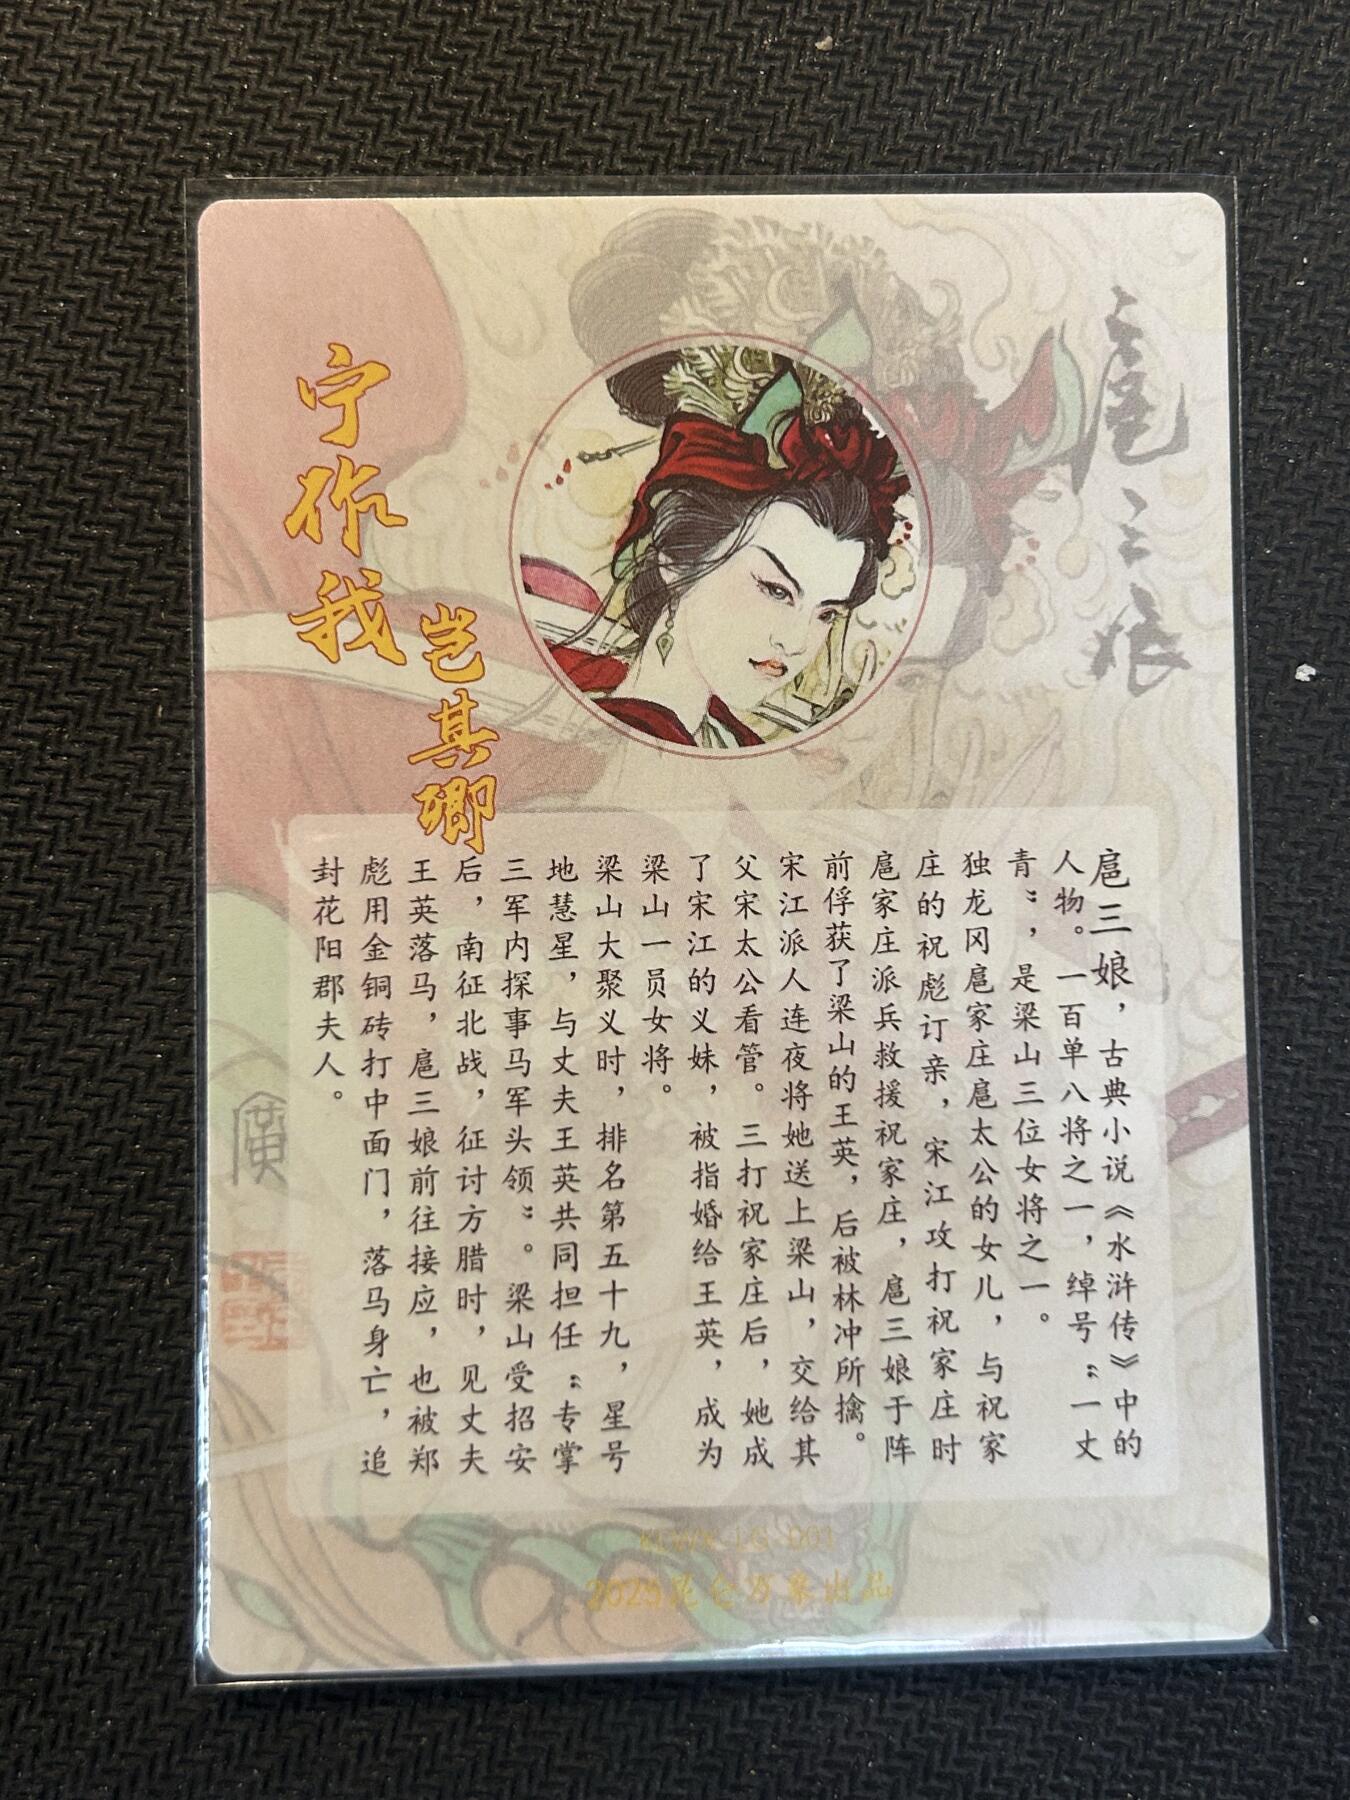 扈三娘
宁作我
岂其卿
扈三娘，古典小说《水浒传》中的
人物。一百单八将之一，绰号“一丈
青”，是梁山三位女将之一。
独龙冈扈家庄扈太公的女儿，与祝家
庄的祝彪订亲，宋江攻打祝家庄时
扈家庄派兵救援祝家庄，扈三娘于阵
前俘获了梁山的王英，后被林冲所擒。
宋江派人连夜将她送上梁山，交给其
父宋太公看管。三打祝家庄后，她成
了宋江的义妹，被指婚给王英，成为
梁山一员女将。
梁山大聚义时，排名第五十九，星号
地慧星，与丈夫王英共同担任“专掌
三军内探事马军头领”。梁山受招安
后，南征北战，征讨方腊时，见丈夫
王英落马，扈三娘前往接应，也被郑
彪用金铜砖打中面门，落马身亡，追
封花阳郡夫人。
2025昆仑万象出品